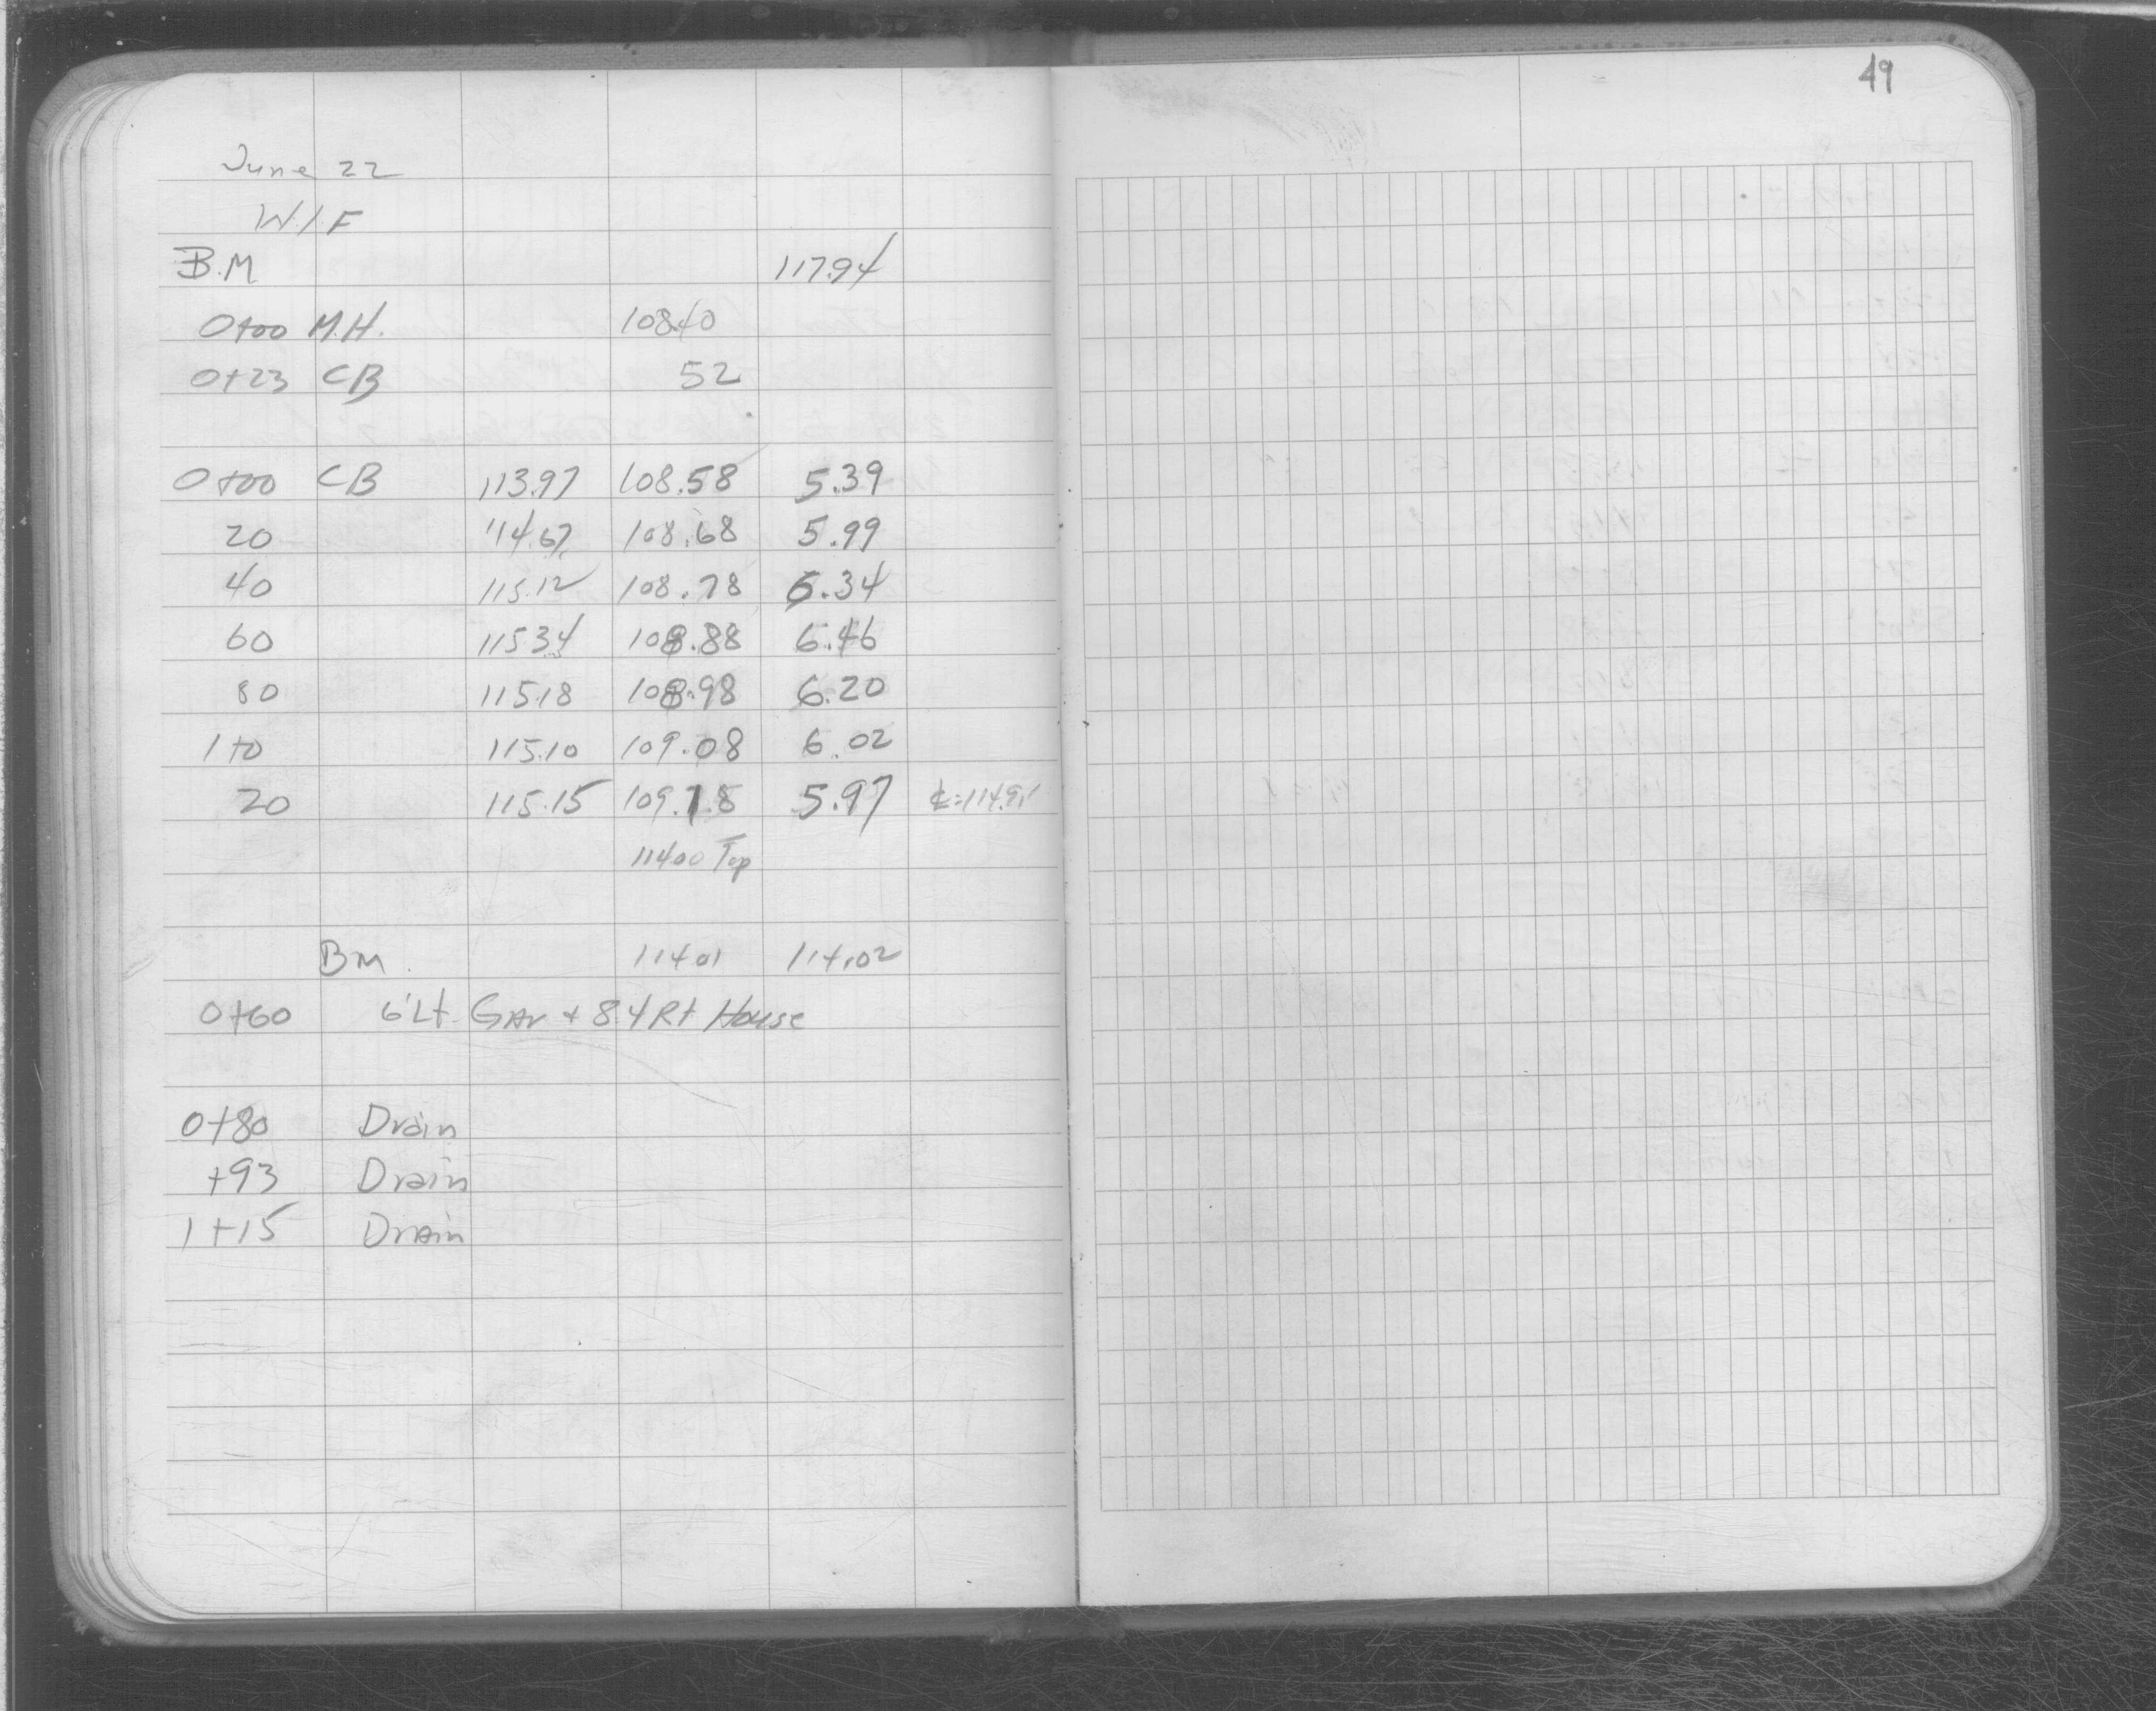 49
June 22
W.I.F
B.M 117.94
0+00 M.H. 108.40
0+23 CB 52
0+00 CB 113.97 108.58 5.39
20 114.67 108.68 5.99
40 115.12 108.78 6.34
60 115.34 108.88 6.46
80 115.18 108.98 6.20
1+0 115.10 109.08 6.02
20 115.15 109.18 5.97
114.00 Top
BM. 114.01 114.02
0+60 6'Lt. GAr + 8.4 Rt House
0+80 Drain
+93 Drain
1+15 Drain